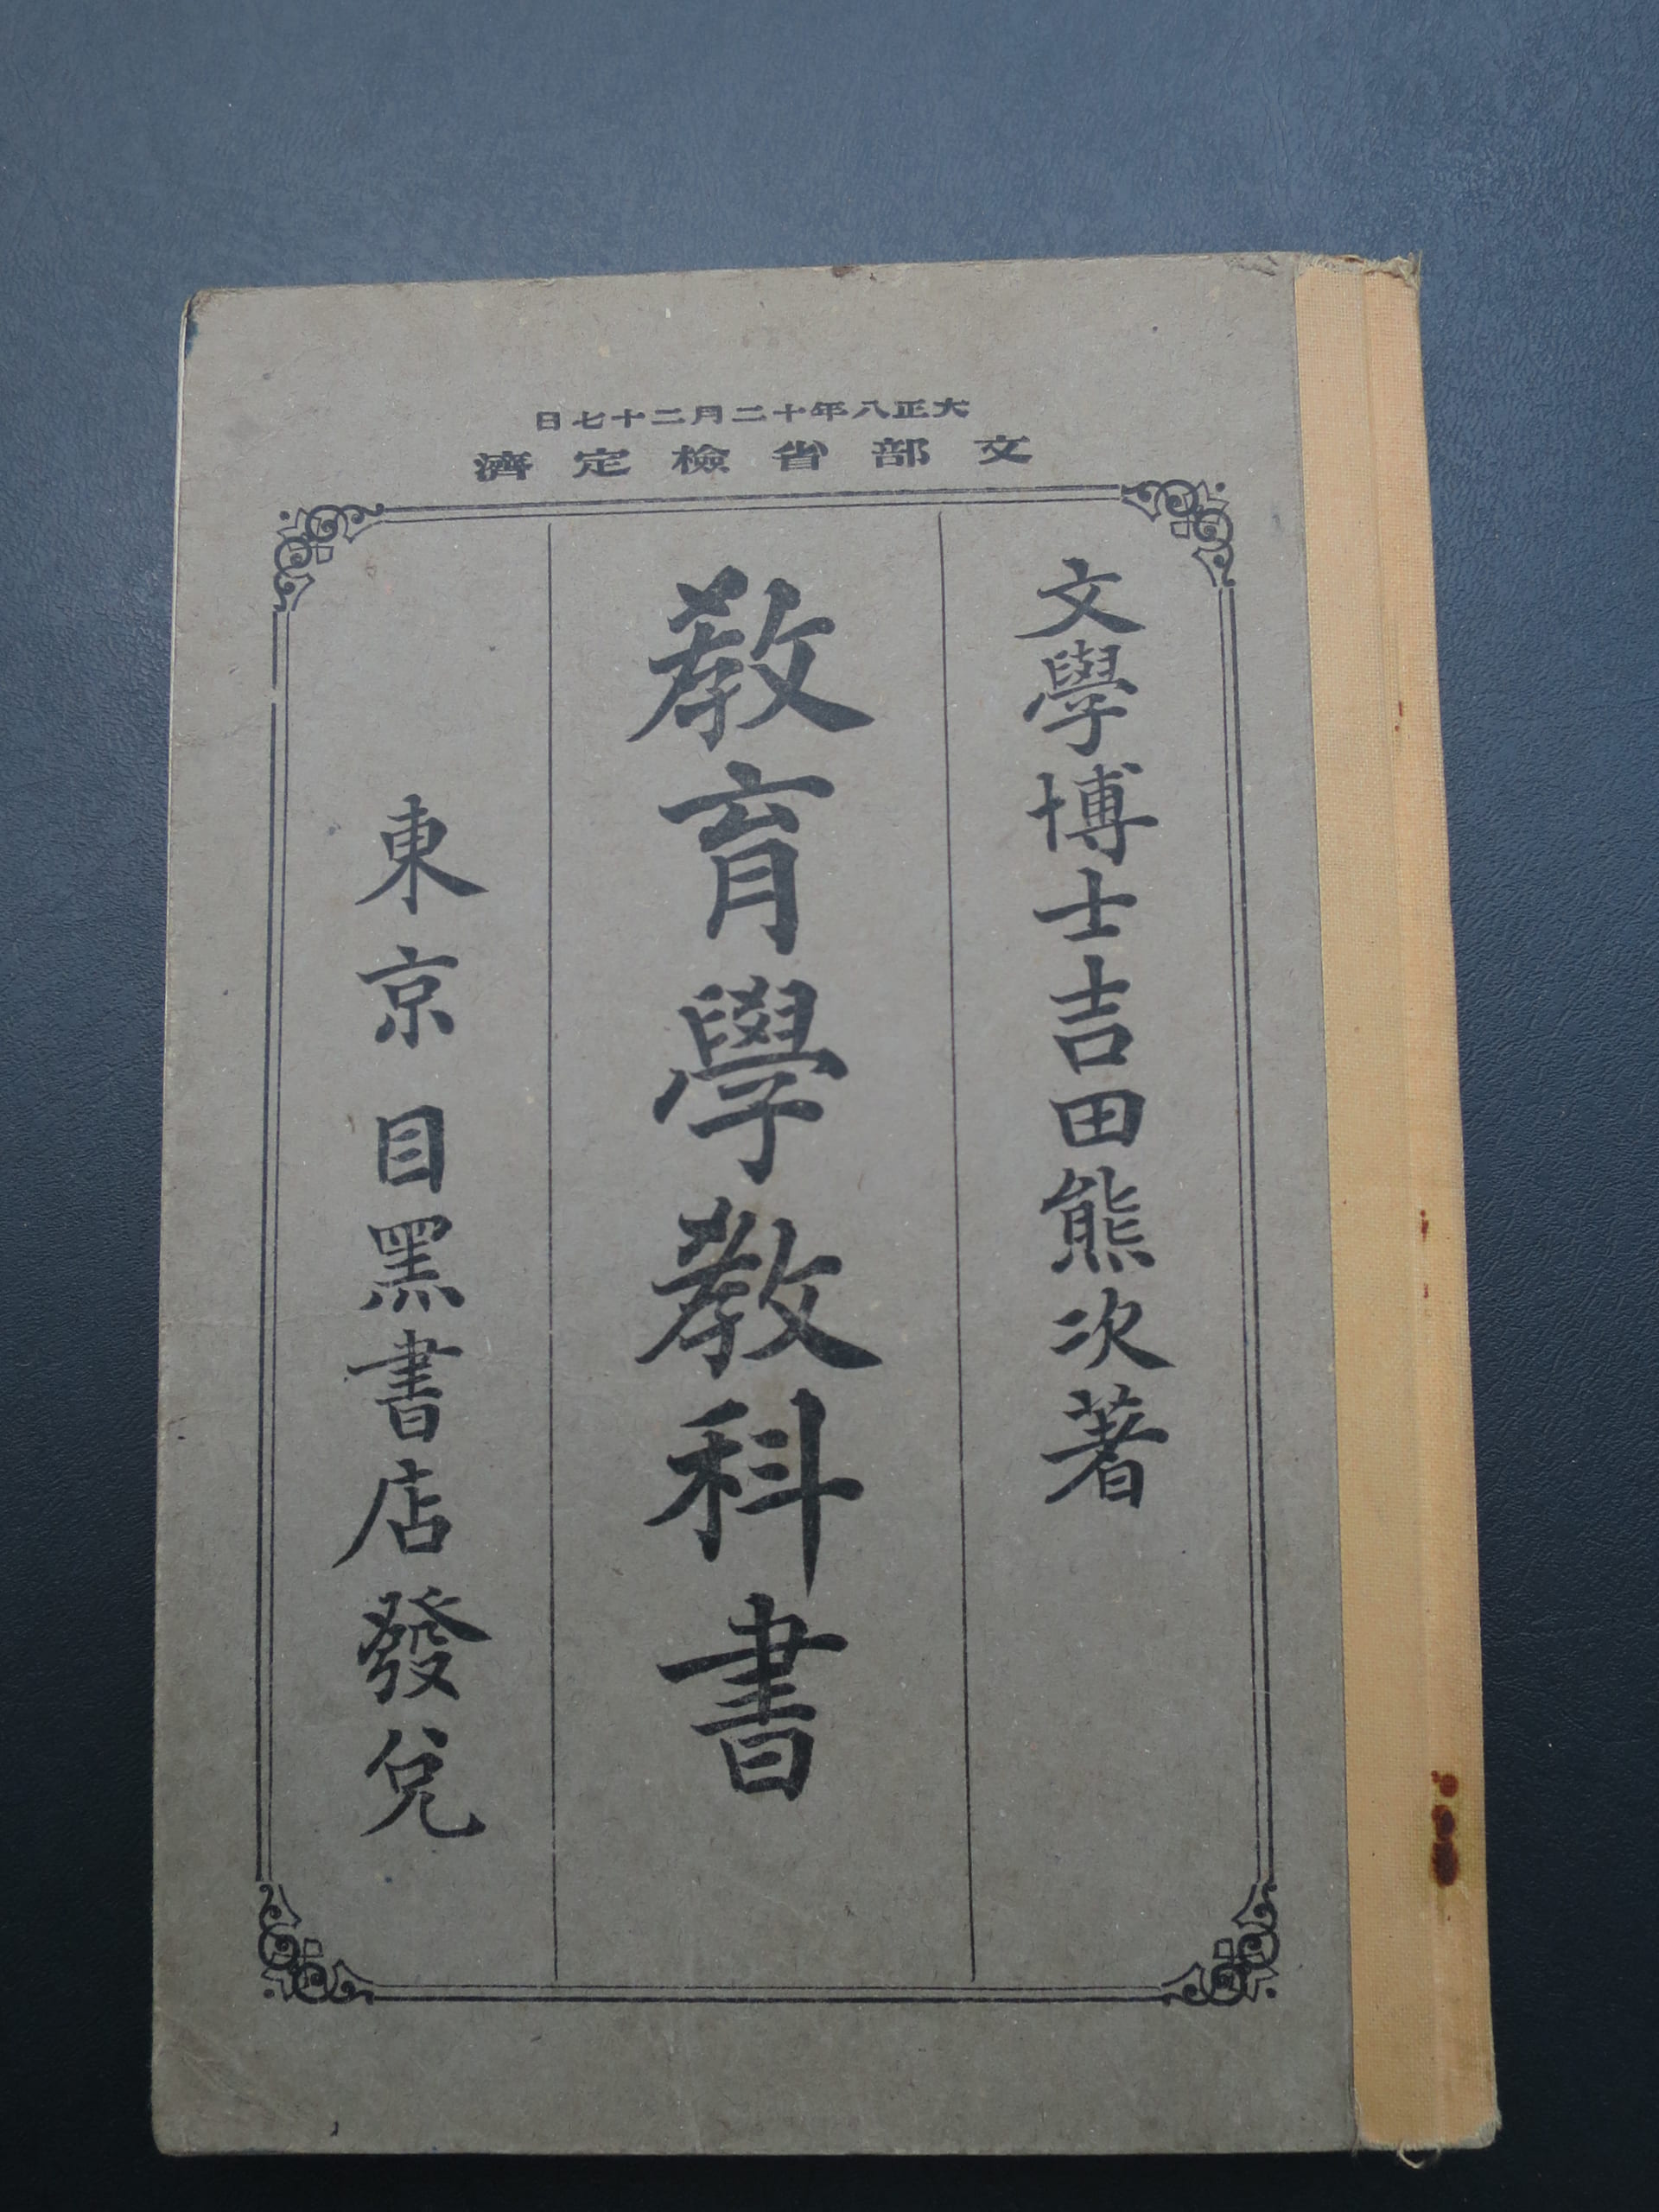 大正八年十二月二十七日
文部省檢定濟
文學博士吉田熊次著
教育學教科書
東京目黑書店發兌